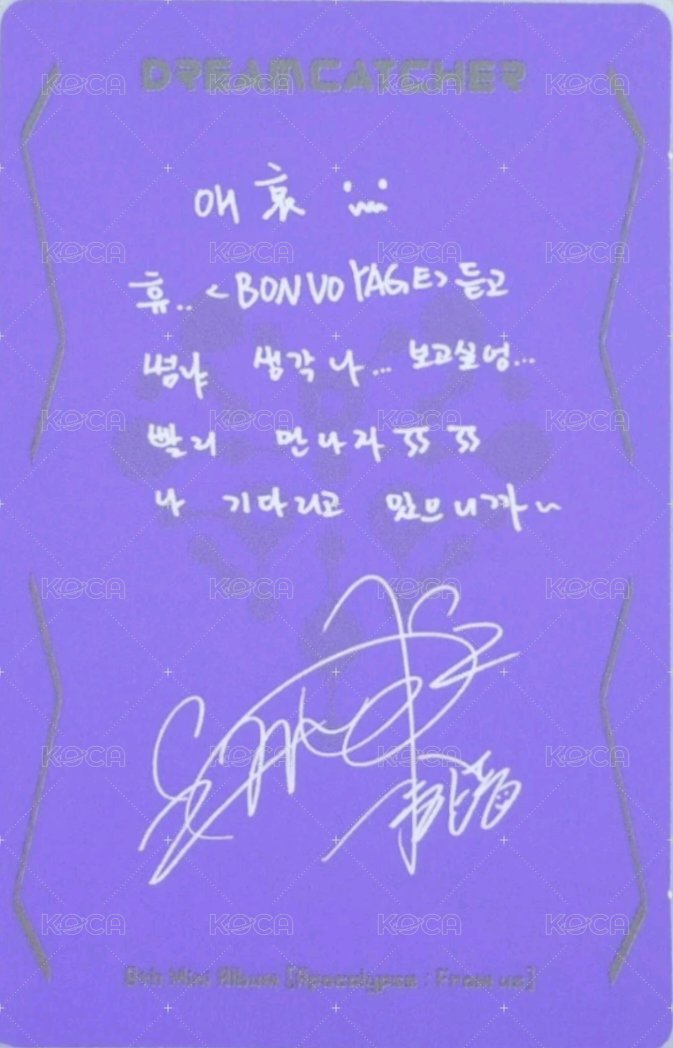 DREAMCATCHER
애 哀
휴.. <BON VOYAGE> 듣고
넘나 생각나... 보고싶엉...
빨리 만나자 ㅠㅠ
나 기다리고 있으니까~
8th Mini Album [Apocalypse : From us]
KOCA